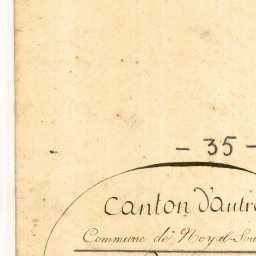 - 35 -
Canton d'autre
Commune de Noyal-Sou